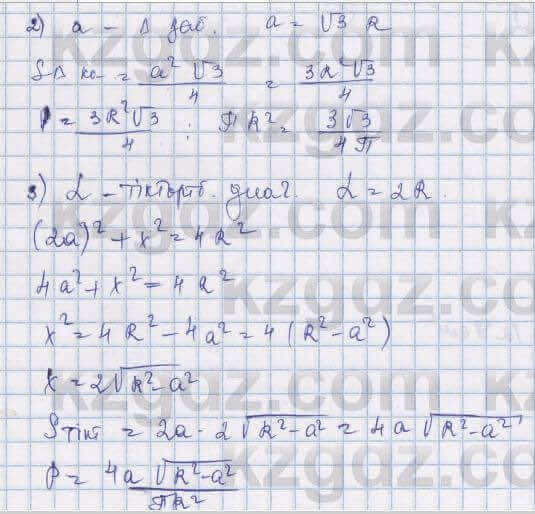 2) a – Δ қаб. a = √3 R
SΔ = a²√3/4 = 3R²√3/4
P = 3R²√3/4 : πR² = 3√3/4π
3) d – тіктөртб. диаг. d = 2R.
(2a)² + x² = 4R²
4a² + x² = 4R²
x² = 4R² – 4a² = 4(R² – a²)
x = 2√(R² – a²)
Sтікт = 2a · 2√(R² – a²) = 4a√(R² – a²)
P = 4a√(R² – a²)/πR²
kzgdz.com